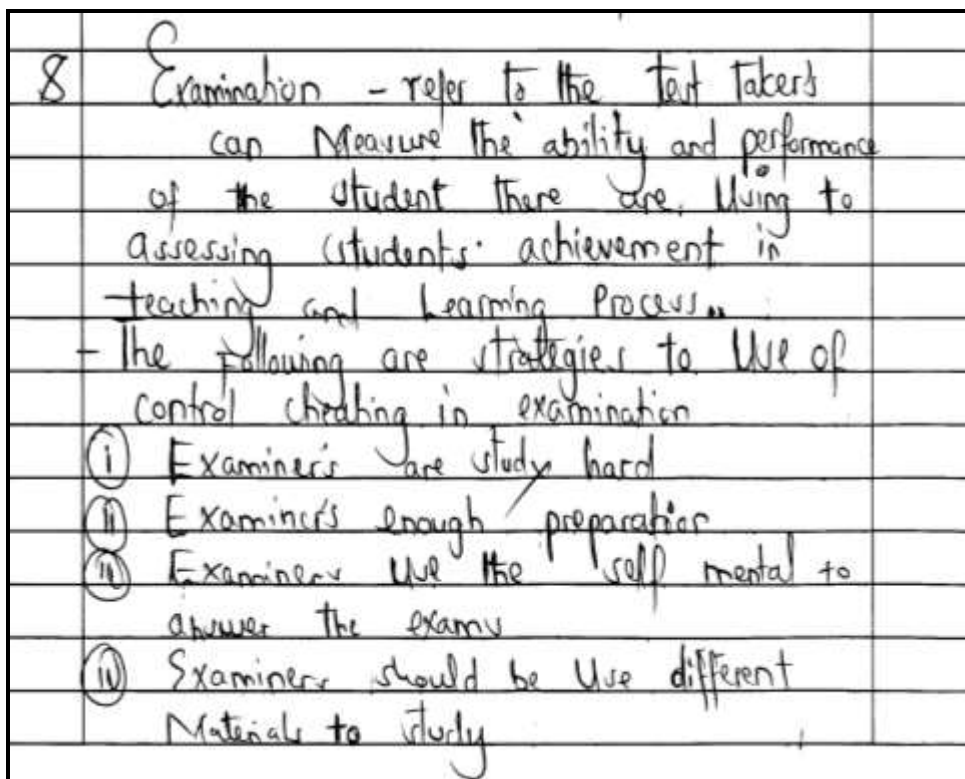 8 Examination - refer to the test takers
can Measure the ability and performance
of the student there are. Using to
assessing students' achievement in
teaching and Learning Process..
- The Following are strategies to Use of
control cheating in examination
(i) Examiner's are study hard
(ii) Examiner's enough preparation
(iii) Examiners use the self mental to
answer the exams
(iv) Examiners should be Use different
Materials to study